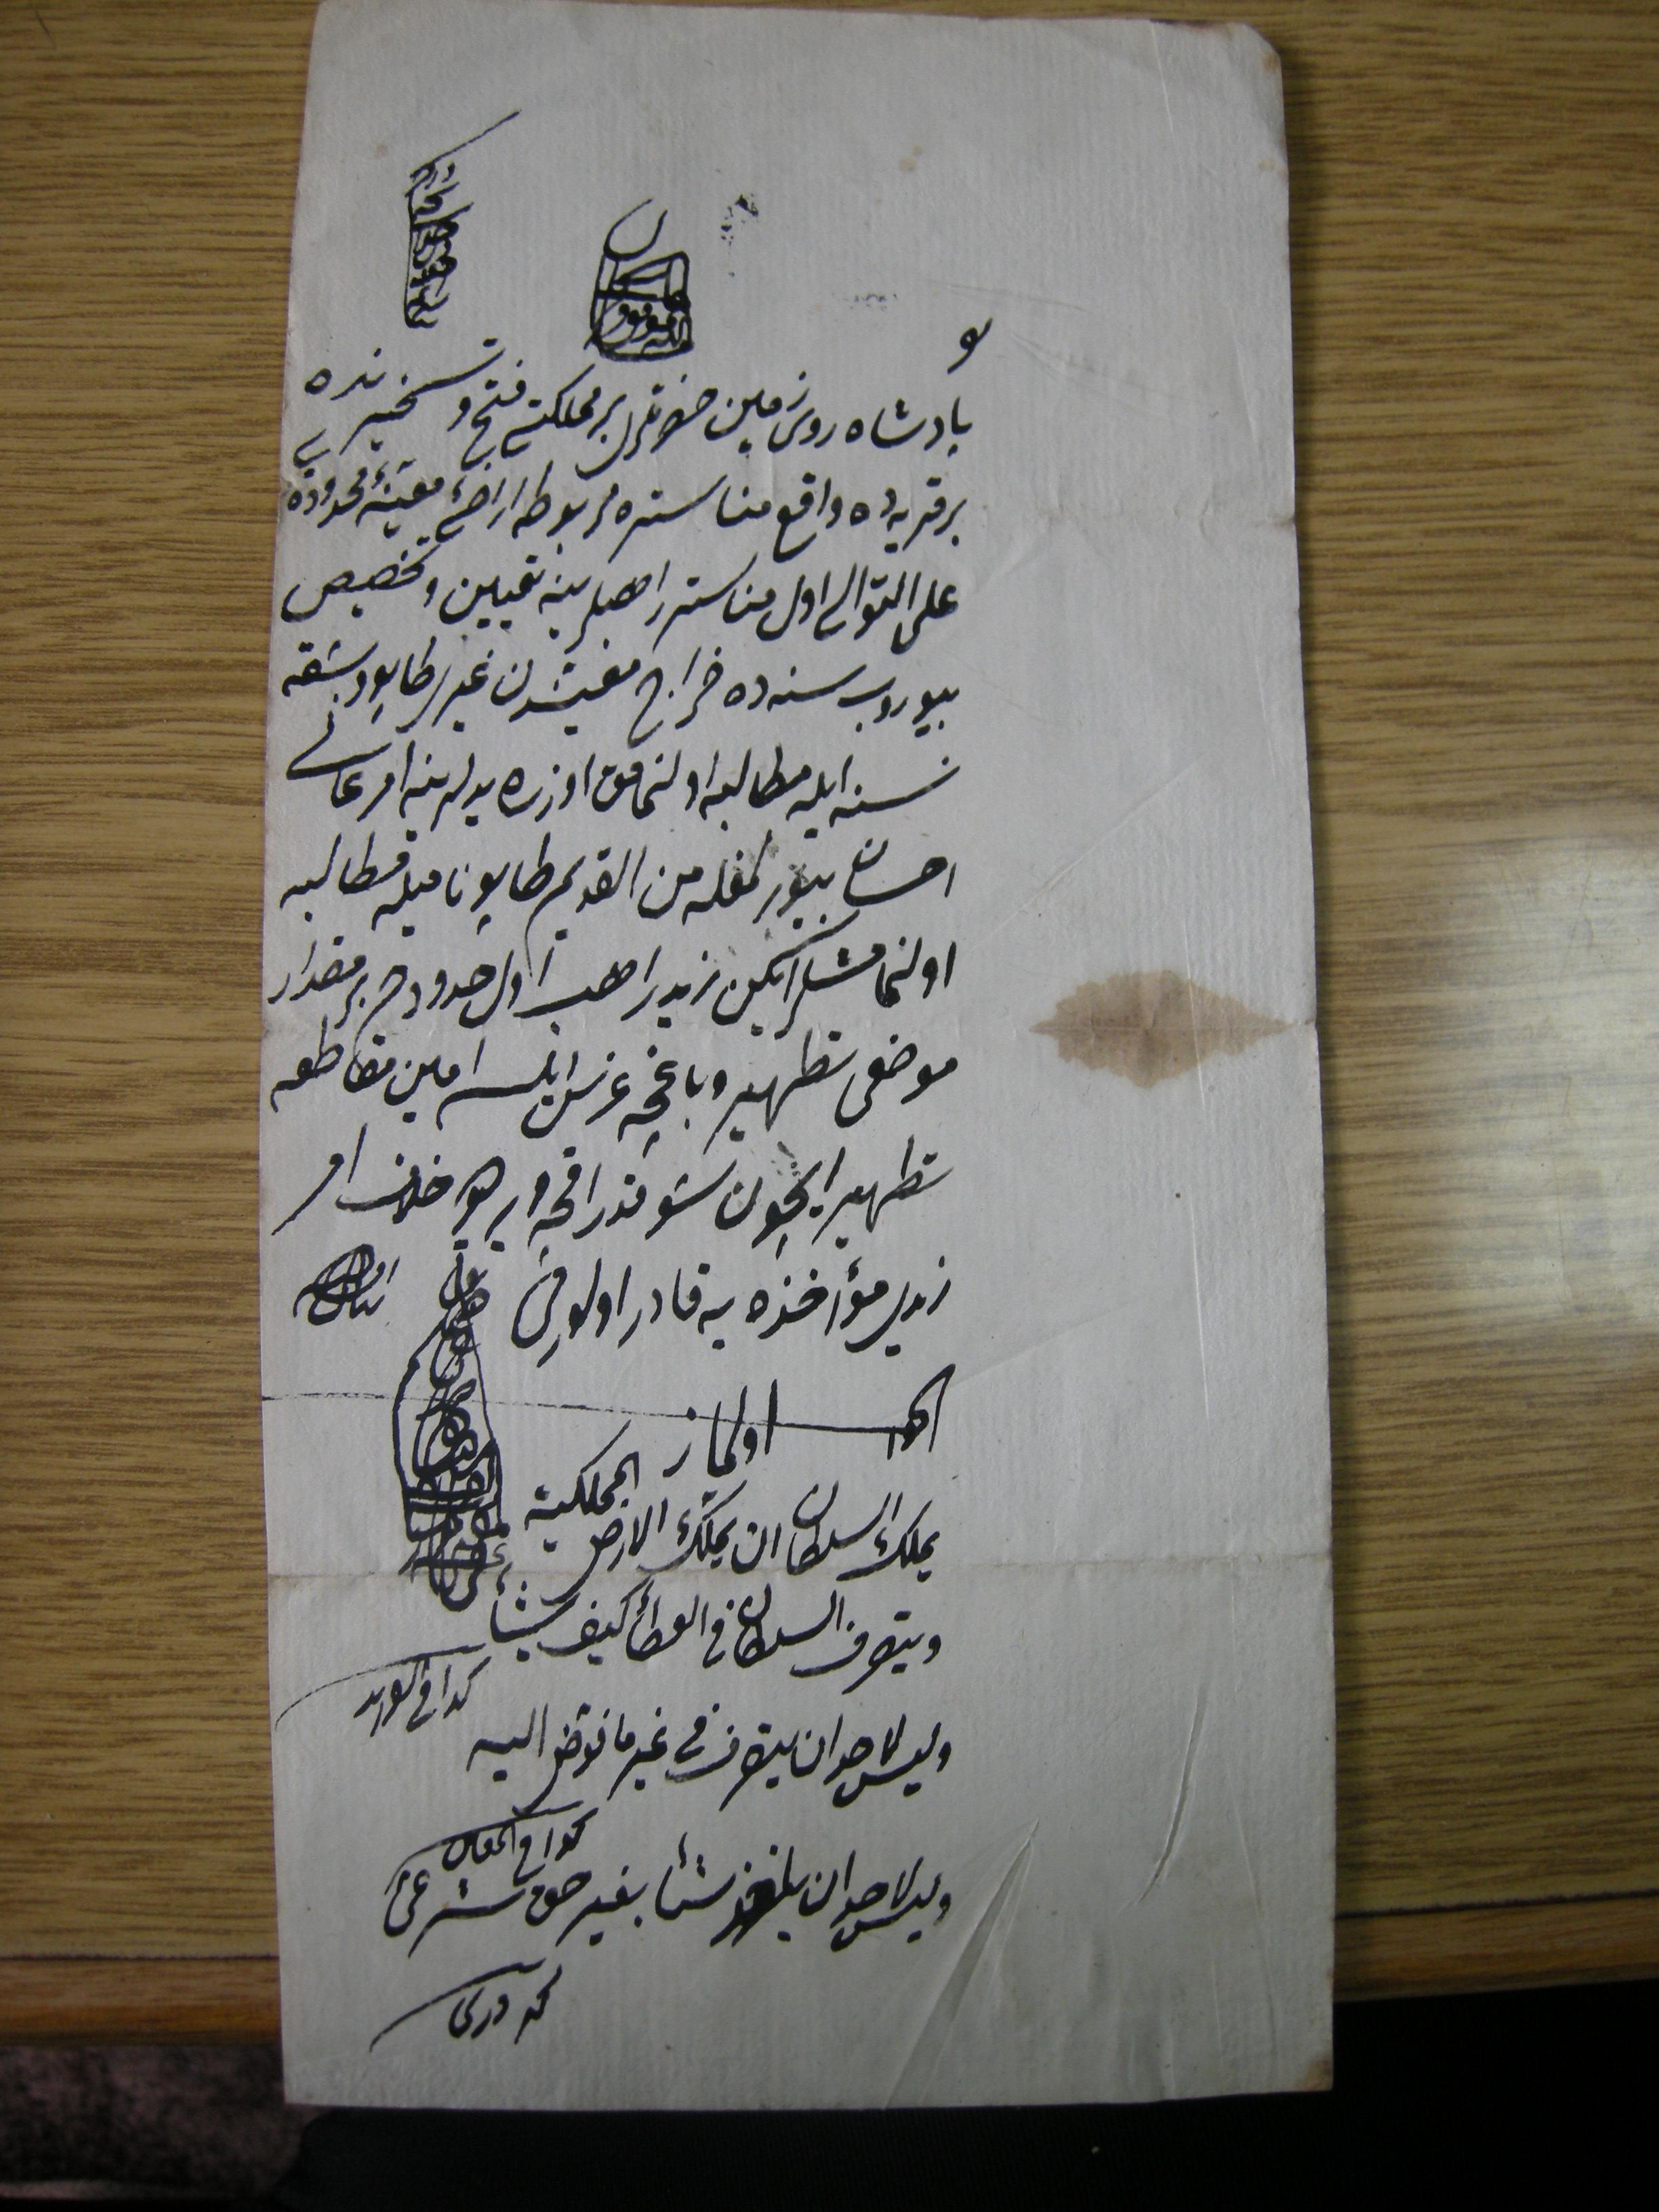 هو
پادشاه روی زمین حضرتلری بر مملکتی فتح و تسخیرنده
بر قریه ده واقع مناستره مربوطه اراضئ معینۀ محدوده یی
علی التوالی اول مناستر راهبلرینه تعیین و تخصیص
بیوروب سنه ده خراج معینندن غیری طاپو و بشقه
نسنه ایله مطالبه اولنمامق اوزره یدلرینه امر عالی
احسان بیورلمغله من القدیم طاپو نامیله مطالبه
اولنمامشلر ایکن زید راهب اول حدودده بر مقدار
موضعی تطهیر و باغچه غرس ایلسه امین مقاطعه
تطهیر ایچون شو قدر اقچه ویر دیو خلاف امر
زیدی مؤاخذه یه قادر اولورمی
الجواب اولماز
یملک السلطان ان یملک الارض المملکیة
ویتصرف السلطان فی العطاء کیف یشاء
کذا فی
ولیس لاحد ان یتصرف فی غیر ما فوض الیه
کذا فی
ولیس لاحد ان یاخذ شیئا بغیر حق شرعی